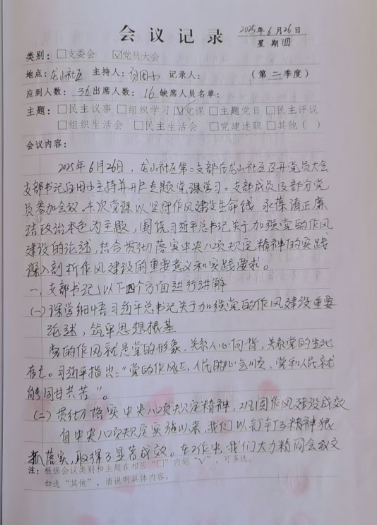 会 议 记 录
2025年6月26日
星 期 四
类别：□支委会 ☑党员大会
地点：龙山社区 主持人： 记录人： （第二季度）
应到人数：36 出席人数：16 缺席人员名单：
主题：□民主议事 □组织学习 ☑党课 □主题党日 □民主评议
□组织生活会 □民主生活会 □党建述职 □其他（ ）
会议内容：
2025年6月26日，龙山社区第二支部在龙山社区召开党员大会
支部书记 主持并开展专题党课学习。支部成员及部分党
员参加会议。本次党课以坚守作风建设生命线 永葆清正廉
洁政治本色为主题，围绕习近平总书记关于加强党的作风
建设的论述，结合贯彻落实中央八项规定精神的实践
深入剖析作风建设的重要意义和实践要求。
一、支部书记从以下四个方面进行讲解
（一）深学细悟习近平总书记关于加强党的作风建设重要
论述，筑牢思想根基
党的作风就是党的形象，关系人心向背，关系党的生死
存亡。习近平指出："党的作风正，人民的心气顺，党和人民就
能同甘共苦"。
（二）贯彻落实中央八项规定精神，巩固作风建设成效
自中央八项规定实施以来，我们以钉钉子精神狠
抓落实，取得了显著成效。在工作中，我们大力精简会议文
注：根据会议类别和主题在相应"□"内划"√"，可多选。
如选"其他"，请说明具体内容。